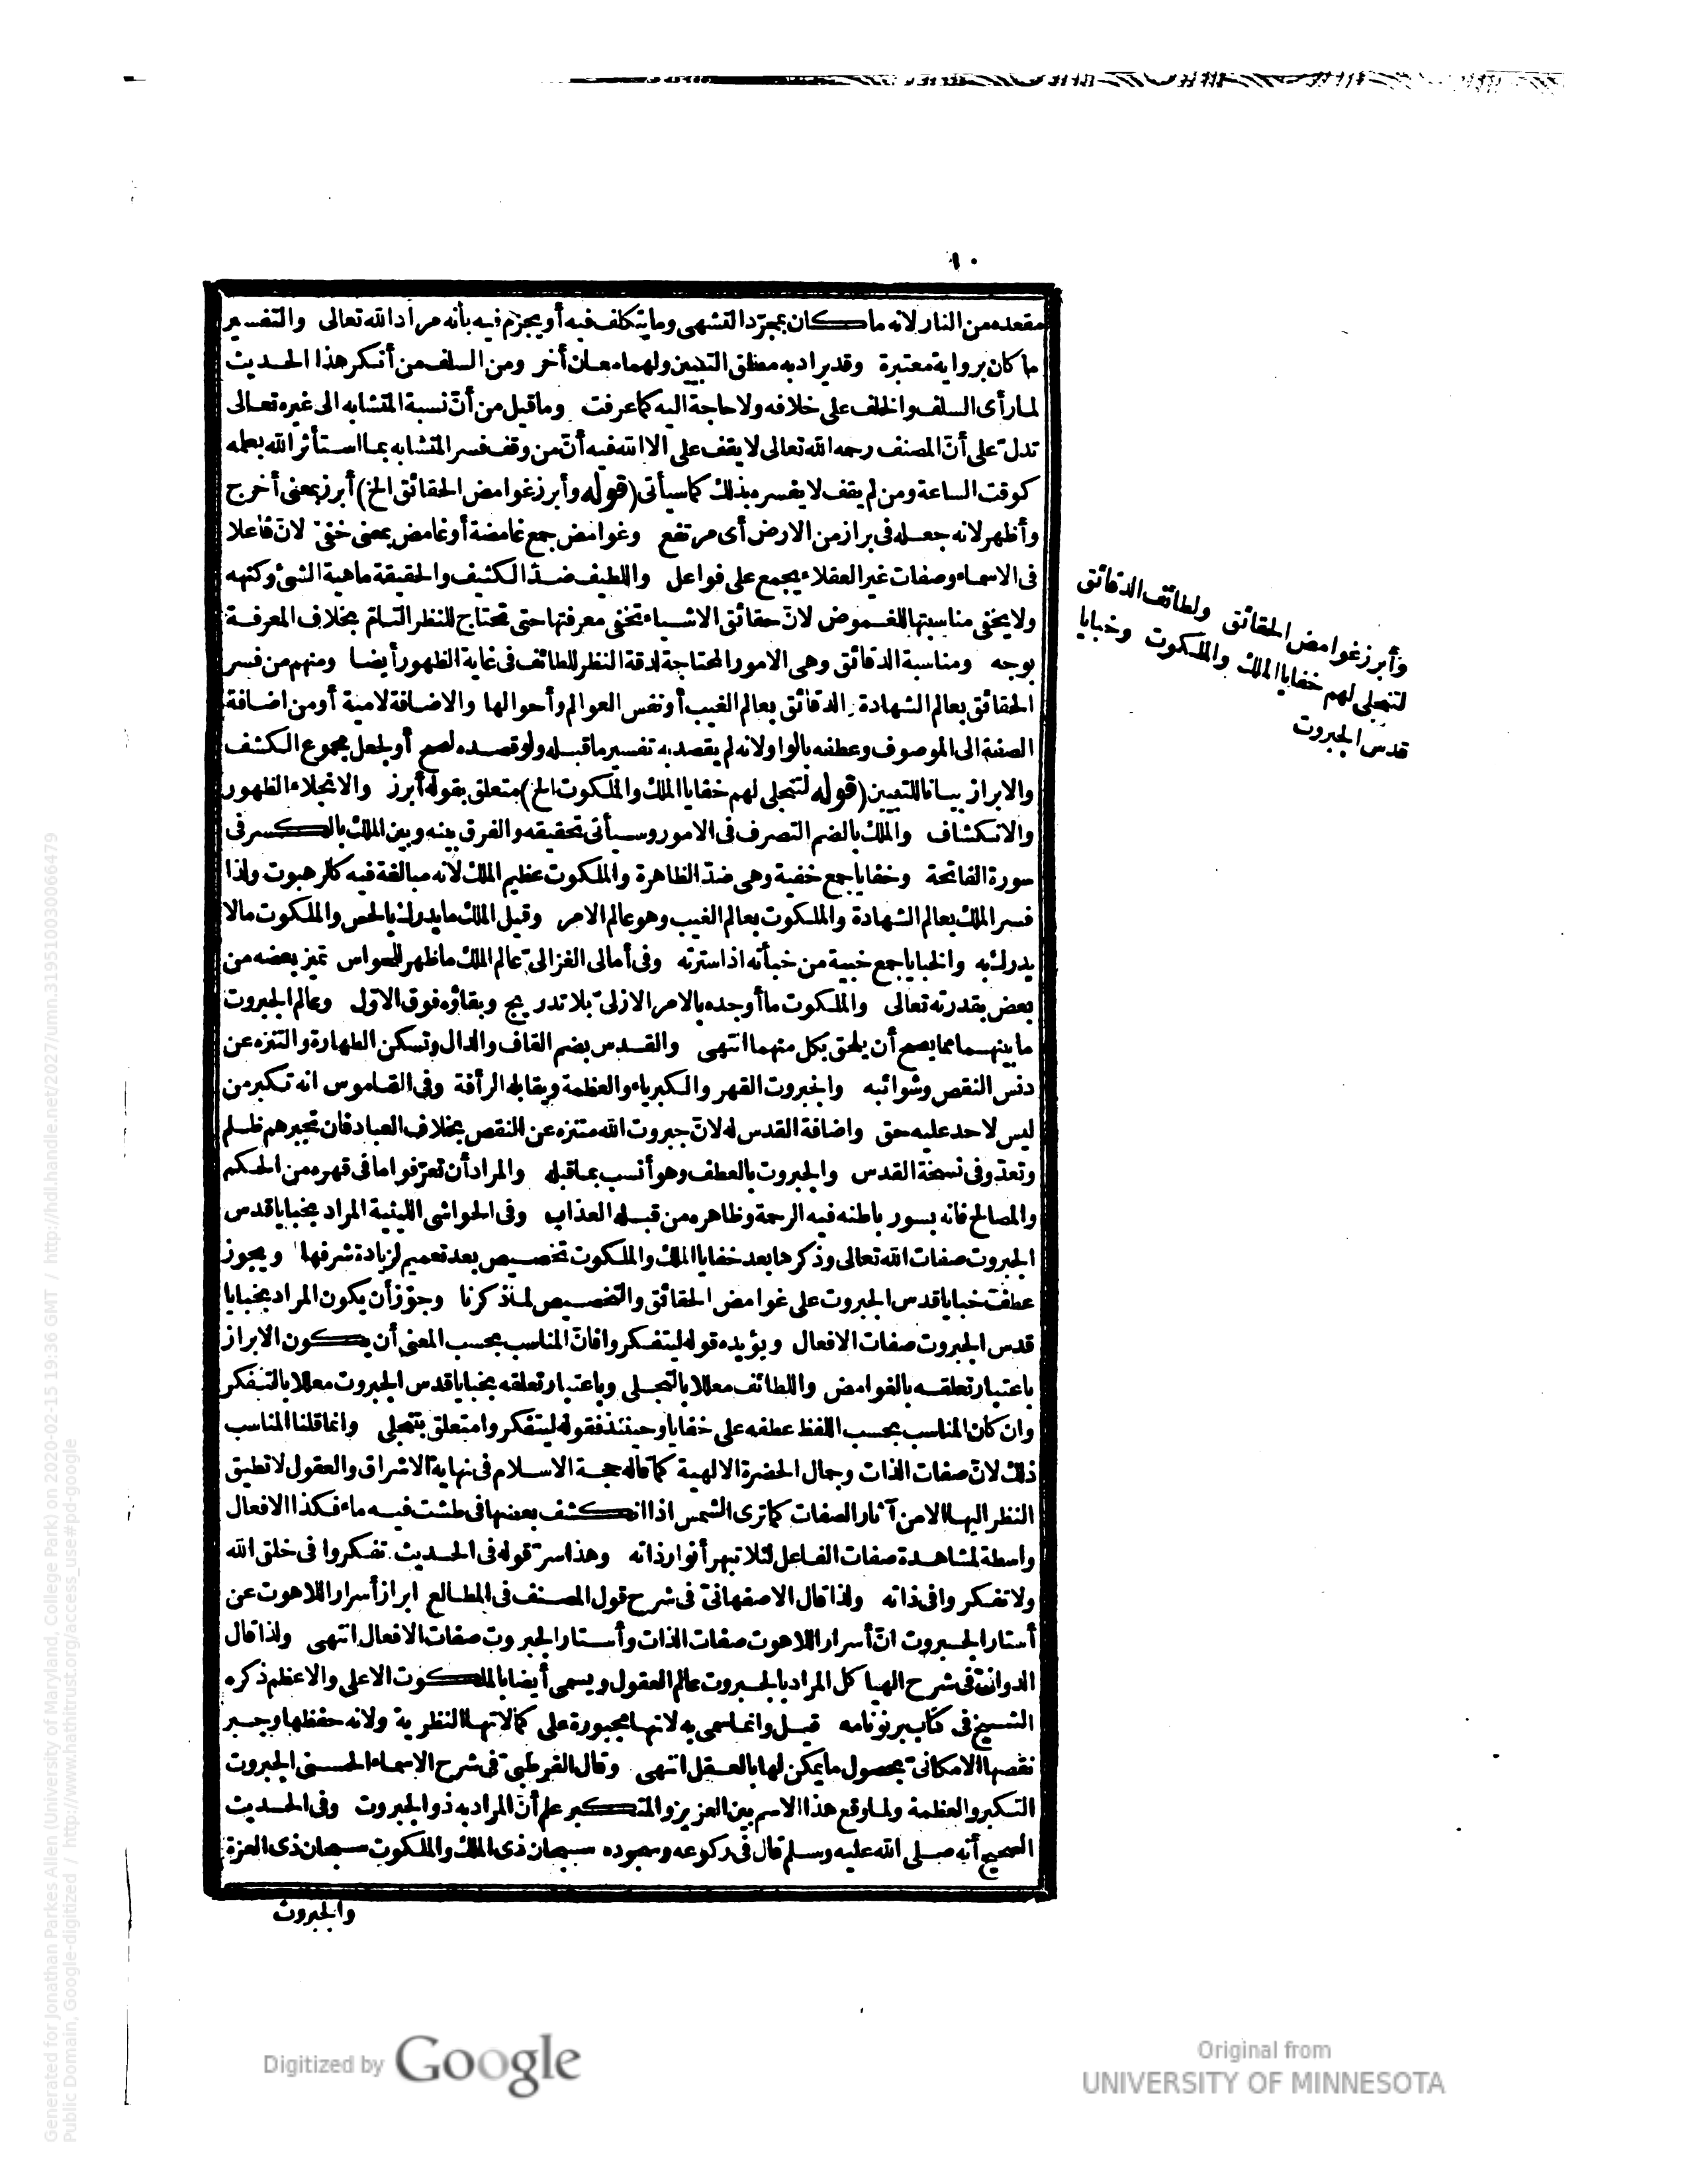 ١٠
مقعده من النار لانه ما كان بمجرّد التشهى وما يتكلف فيه أو يجزم فيه بأنه مراد الله تعالى والتفسير
ما كان برواية معتبرة وقد يراد به مطلق التبيين ولهما معان أخر ومن السلف من أنكر هذا الحديث
لما رأى السلف والخلف على خلافه ولا حاجة اليه كما عرفت وما قيل من أنّ نسبة المتشابه الى غيره تعالى
تدلّ على أنّ المصنف رحمه الله تعالى لا يقف على الا الله فيه أنّ من وقف فسر المتشابه بما استأثر الله بعلمه
كوقت الساعة ومن لم يقف لا يفسره بذلك كما سيأتى (قوله وأبرز غوامض الحقائق الخ) أبرز بمعنى أخرج
وأظهر لانه جعله فى براز من الارض أى مرتفع وغوامض جمع غامضة أو غامض بمعنى خفىّ لانّ فاعلا
فى الاسماء وصفات غير العقلاء يجمع على فواعل واللطيف ضدّ الكثيف والحقيقة ماهية الشئ وكنهه
ولا يخفى مناسبتها للغموض لانّ حقائق الاشياء تخفى معرفتها حتى تحتاج للنظر التامّ بخلاف المعرفة
بوجه ومناسبة الدقائق وهى الامور المحتاجة لدقة النظر للطائف فى غاية الظهور أيضا ومنهم من فسر
الحقائق بعالم الشهادة والدقائق بعالم الغيب أو نفس العوالم وأحوالها والاضافة لامية أو من اضافة
الصفة الى الموصوف وعطفه بالواو لانه لم يقصد به تفسير ما قبله ولو قصده لصح أو لجعل مجموع الكشف
والابراز بيانا للتبيين (قوله لتنجلى لهم خفايا الملك والملكوت الخ) متعلق بقوله أبرز والانجلاء الظهور
والانكشاف والملك بالضم التصرف فى الامور وسيأتى تحقيقه والفرق بينه وبين الملك بالكسر فى
سورة الفاتحة وخفايا جمع خفية وهى ضدّ الظاهرة والملكوت عظيم الملك لانه مبالغة فيه كالرهبوت ولذا
فسر الملك بعالم الشهادة والملكوت بعالم الغيب وهو عالم الامر وقيل الملك ما يدرك بالحس والملكوت مالا
يدرك به والخبايا جمع خبية من خبأته اذا سترته وفى أمالى الغزالىّ عالم الملك ما ظهر للحواس تميز بعضه من
بعض بقدرته تعالى والملكوت ما أوجده بالامر الازلىّ بلا تدريج وبقاؤه فوق الاوّل وعالم الجبروت
ما بينهما مما يصح أن يلحق بكل منهما انتهى والقدس بضم القاف والدال وتسكن الطهارة والتنزه عن
دنس النقص وشوائبه والجبروت القهر والكبرياء والعظمة ويقابله الرأفة وفى القاموس انه تكبر من
ليس لاحد عليه حق واضافة القدس له لانّ جبروت الله متنزه عن النقص بخلاف العباد فان تجبرهم ظلم
وتعدّ وفى نسخة القدس والجبروت بالعطف وهو أنسب بما قبله والمراد أن تعرّفوا ما فى قهره من الحكم
والمصالح فانه بسور باطنه فيه الرحمة وظاهره من قبله العذاب وفى الحواشى الليثية المراد بخبايا قدس
الجبروت صفات الله تعالى وذكرها بعد خفايا الملك والملكوت تخصيص بعد تعميم لزيادة شرفها ويجوز
عطف خبايا قدس الجبروت على غوامض الحقائق والتخصيص لما ذكرنا وجوّز أن يكون المراد بخبايا
قدس الجبروت صفات الافعال ويؤيده قوله ليتفكروا فانّ المناسب بحسب المعنى أن يكون الابراز
باعتبار تعلقه بالغوامض واللطائف معللا بالتجلى وباعتبار تعلقه بخبايا قدس الجبروت معللا بالتفكر
وان كان المناسب بحسب اللفظ عطفه على خفايا وحينئذ فقوله ليتفكروا متعلق بتنجلى وانما قلنا المناسب
ذلك لانّ صفات الذات وجمال الحضرة الالهية كما قاله حجة الاسلام فى نهاية الاشراق والعقول لا تطيق
النظر اليها الا من آثار الصفات كما ترى الشمس اذا انكشف بعضها فى طشت فيه ماء فكذا الافعال
واسطة لمشاهدة صفات الفاعل لئلا تبهر أنوار ذاته وهذا سرّ قوله فى الحديث تفكروا فى خلق الله
ولا تفكروا فى ذاته ولذا قال الاصفهانىّ فى شرح قول المصنف فى المطالع ابراز أسرار اللاهوت عن
أستار الجبروت انّ أسرار اللاهوت صفات الذات وأستار الجبروت صفات الافعال انتهى ولذا قال
الدوانىّ فى شرح الهياكل المراد بالجبروت عالم العقول ويسمى أيضا بالملكوت الاعلى والاعظم ذكره
الشيخ فى كتاب برتونامه قيل وانما سمى به لانها مجبورة على كمالاتها النظرية ولانه حفظها وجبر
نقصها الامكانىّ بحصول ما يمكن لها بالعقل انتهى وقال القرطبىّ فى شرح الاسماء الحسنى الجبروت
التكبر والعظمة ولما وقع هذا الاسم بين العزيز والمتكبر علم أنّ المراد به ذو الجبروت وفى الحديث
الصحيح أنه صلى الله عليه وسلم قال فى ركوعه وسجوده سبحان ذى الملك والملكوت سبحان ذى العزة
والجبروت
وأبرز غوامض الحقائق ولطائف الدقائق
لتنجلى لهم خفايا الملك والملكوت وخبايا
قدس الجبروت
Generated for Jonathan Parkes Allen (University of Maryland, College Park) on 2020-02-15 19:36 GMT / http://hdl.handle.net/2027/umn.31951003006647​9
Public Domain, Google-digitized / http://www.hathitrust.org/access_use#pd-google
Digitized by Google
Original from
UNIVERSITY OF MINNESOTA